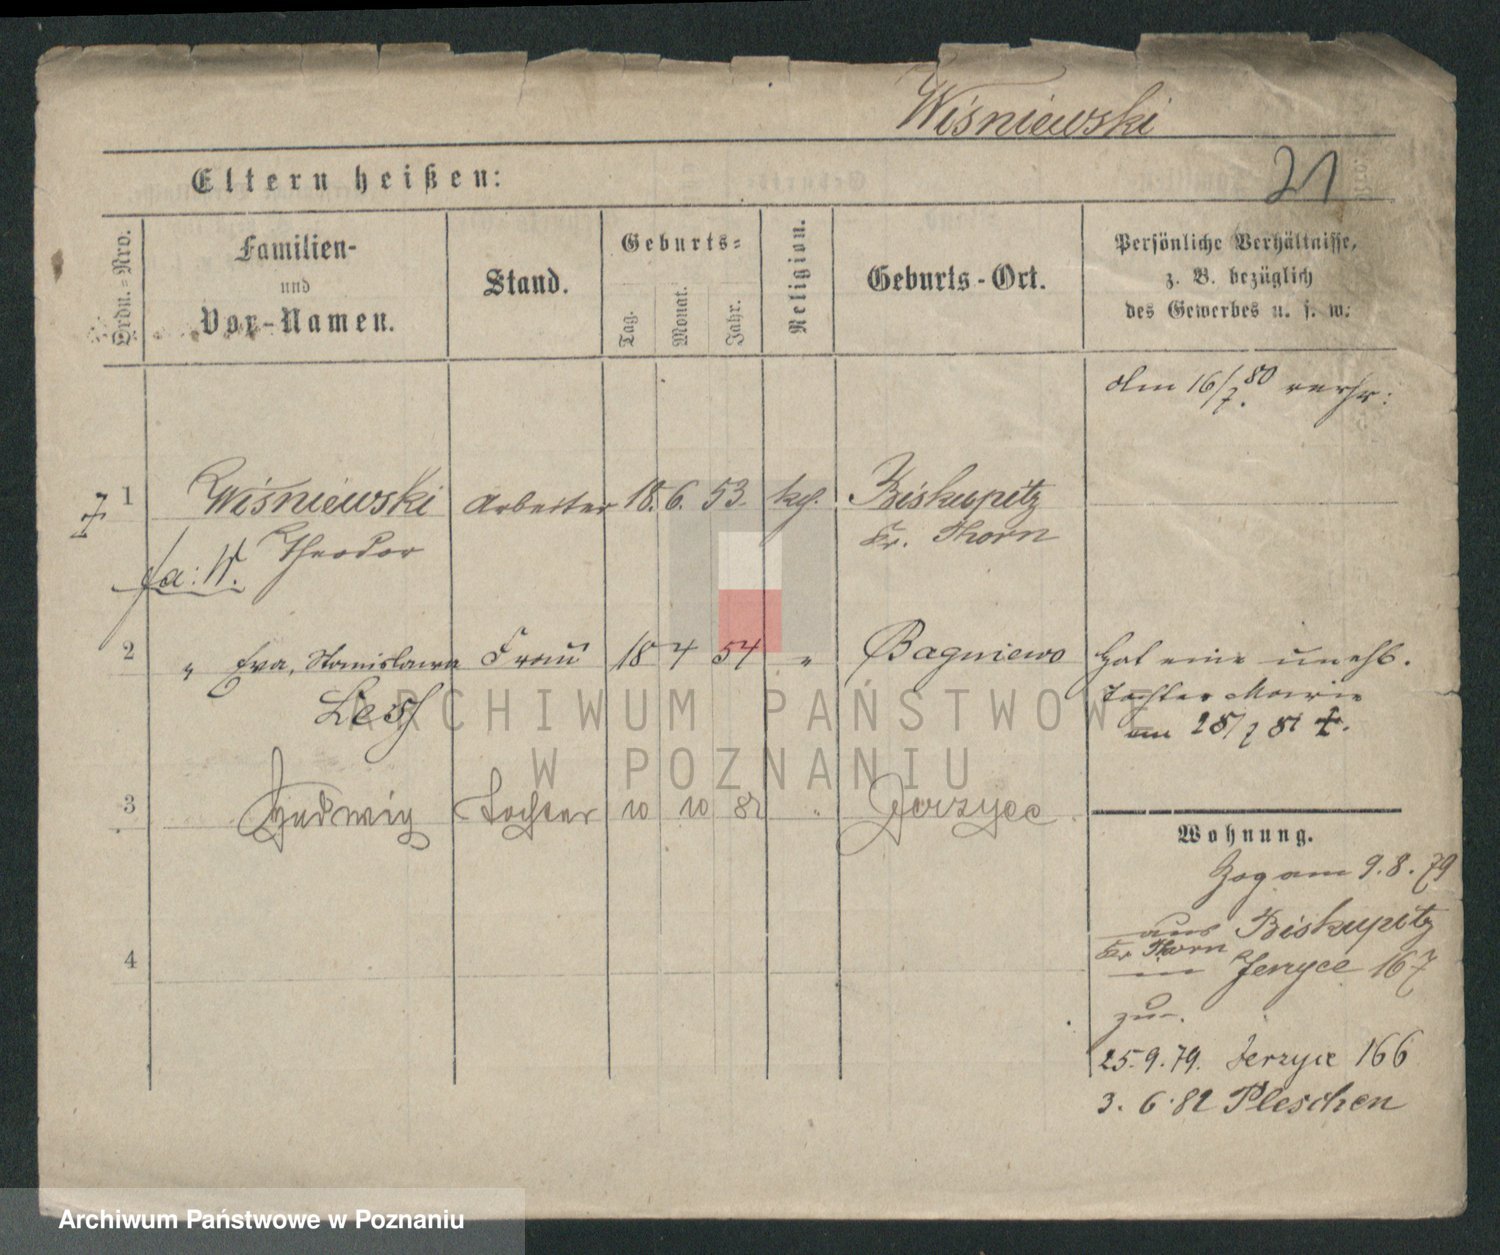 Wiśniewski
21
Eltern heißen:
Ordn.-Nro.
Familien-
und
Vor-Namen.
Stand.
Geburts-
Tag.
Monat.
Jahr.
Religion.
Geburts-Ort.
Persönliche Verhältnisse,
z. B. bezüglich
des Gewerbes u. s. w.
Am 16/7. 80 verhr:
1 Wiśniewski Arbeiter 18. 6. 53. kg. Biskupitz
Theodor Kr. Thorn
fa: W.
2 " Eva, Stanislawa Frau 18 4 54 " Bagniewo Hat eine unehl.
Lesz Tochter Marie
am 28/7 81 †.
3 Hedwig Tochter 10 10 82 " Jerzyce
Wohnung.
Zog am 9.8.79
aus Biskupitz
Kr. Thorn
Jerzyce 167
zu.
4
25.9.79. Jerzyce 166
3. 6. 82 Pleschen
ARCHIWUM PAŃSTWOWE
W POZNANIU
Archiwum Państwowe w Poznaniu